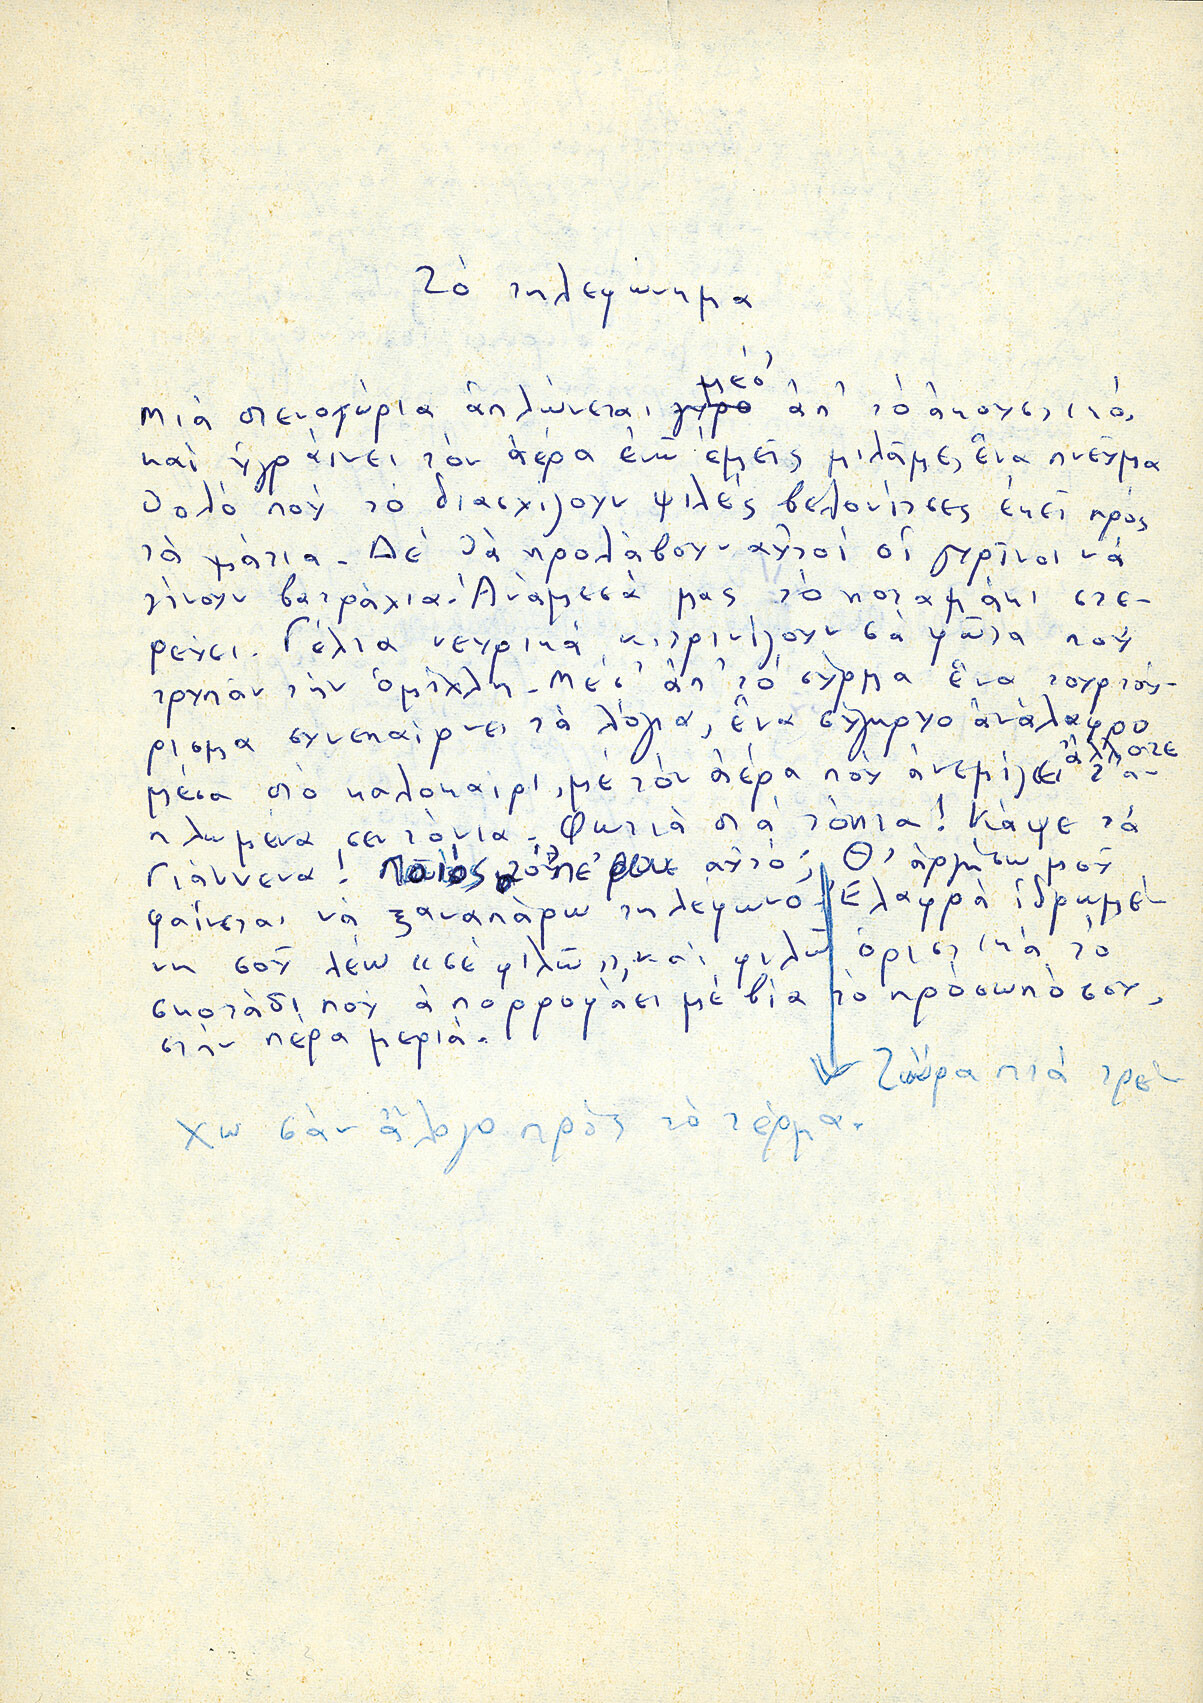 Τό τηλεφώνημα
μέσ'
Μιά στενοχώρια ἁπλώνεται γύρο ἀπ' τό ἀκουστικό,
καί ὑγραίνει τόν ἀέρα ἐνῶ ἐμεῖς μιλᾶμε, ἕνα πνεῦμα
θολό πού τό διασχίζουν ψιλές βελονίτσες ἐκεῖ πρός
τά μάτια. Δέ θά προλάβουν αὐτοί οἱ γυρῖνοι νά
γίνουν βατράχια. Ἀνάμεσά μας τό ποταμάκι στε-
ρεύει. Γέλια νευρικά κιτρινίζουν σά φῶτα πού
τρυπᾶν τήν ὁμίχλη. Μέσ' ἀπ' τό σύρμα ἕνα τουρτού-
ρισμα συνεπαίρνει τά λόγια, ἕνα σύγκρυο ἀνάλαφρο
ἄλλοτε
μέσα στό καλοκαίρι, μέ τόν ἀέρα πού ἀνεμίζει τ' ἁ-
πλωμένα σεντόνια. Φωτιά στά τόπια! Κάψε τά
Γιάννενα! Ποιός τό 'πε αὐτό; Θ' ἀργήσω μοῦ
φαίνεται νά ξαναπάρω τηλέφωνο. Ἐλαφρά ἱδρωμέ-
νη σοῦ λέω «σέ φιλῶ», καί φιλῶ ὁριστικά τό
σκοτάδι πού ἀπορροφάει μέ βία τό πρόσωπό σου,
στήν πέρα μεριά.
Τώρα πιά τρέ-
χω σάν ἄλογο πρός τό τέρμα.